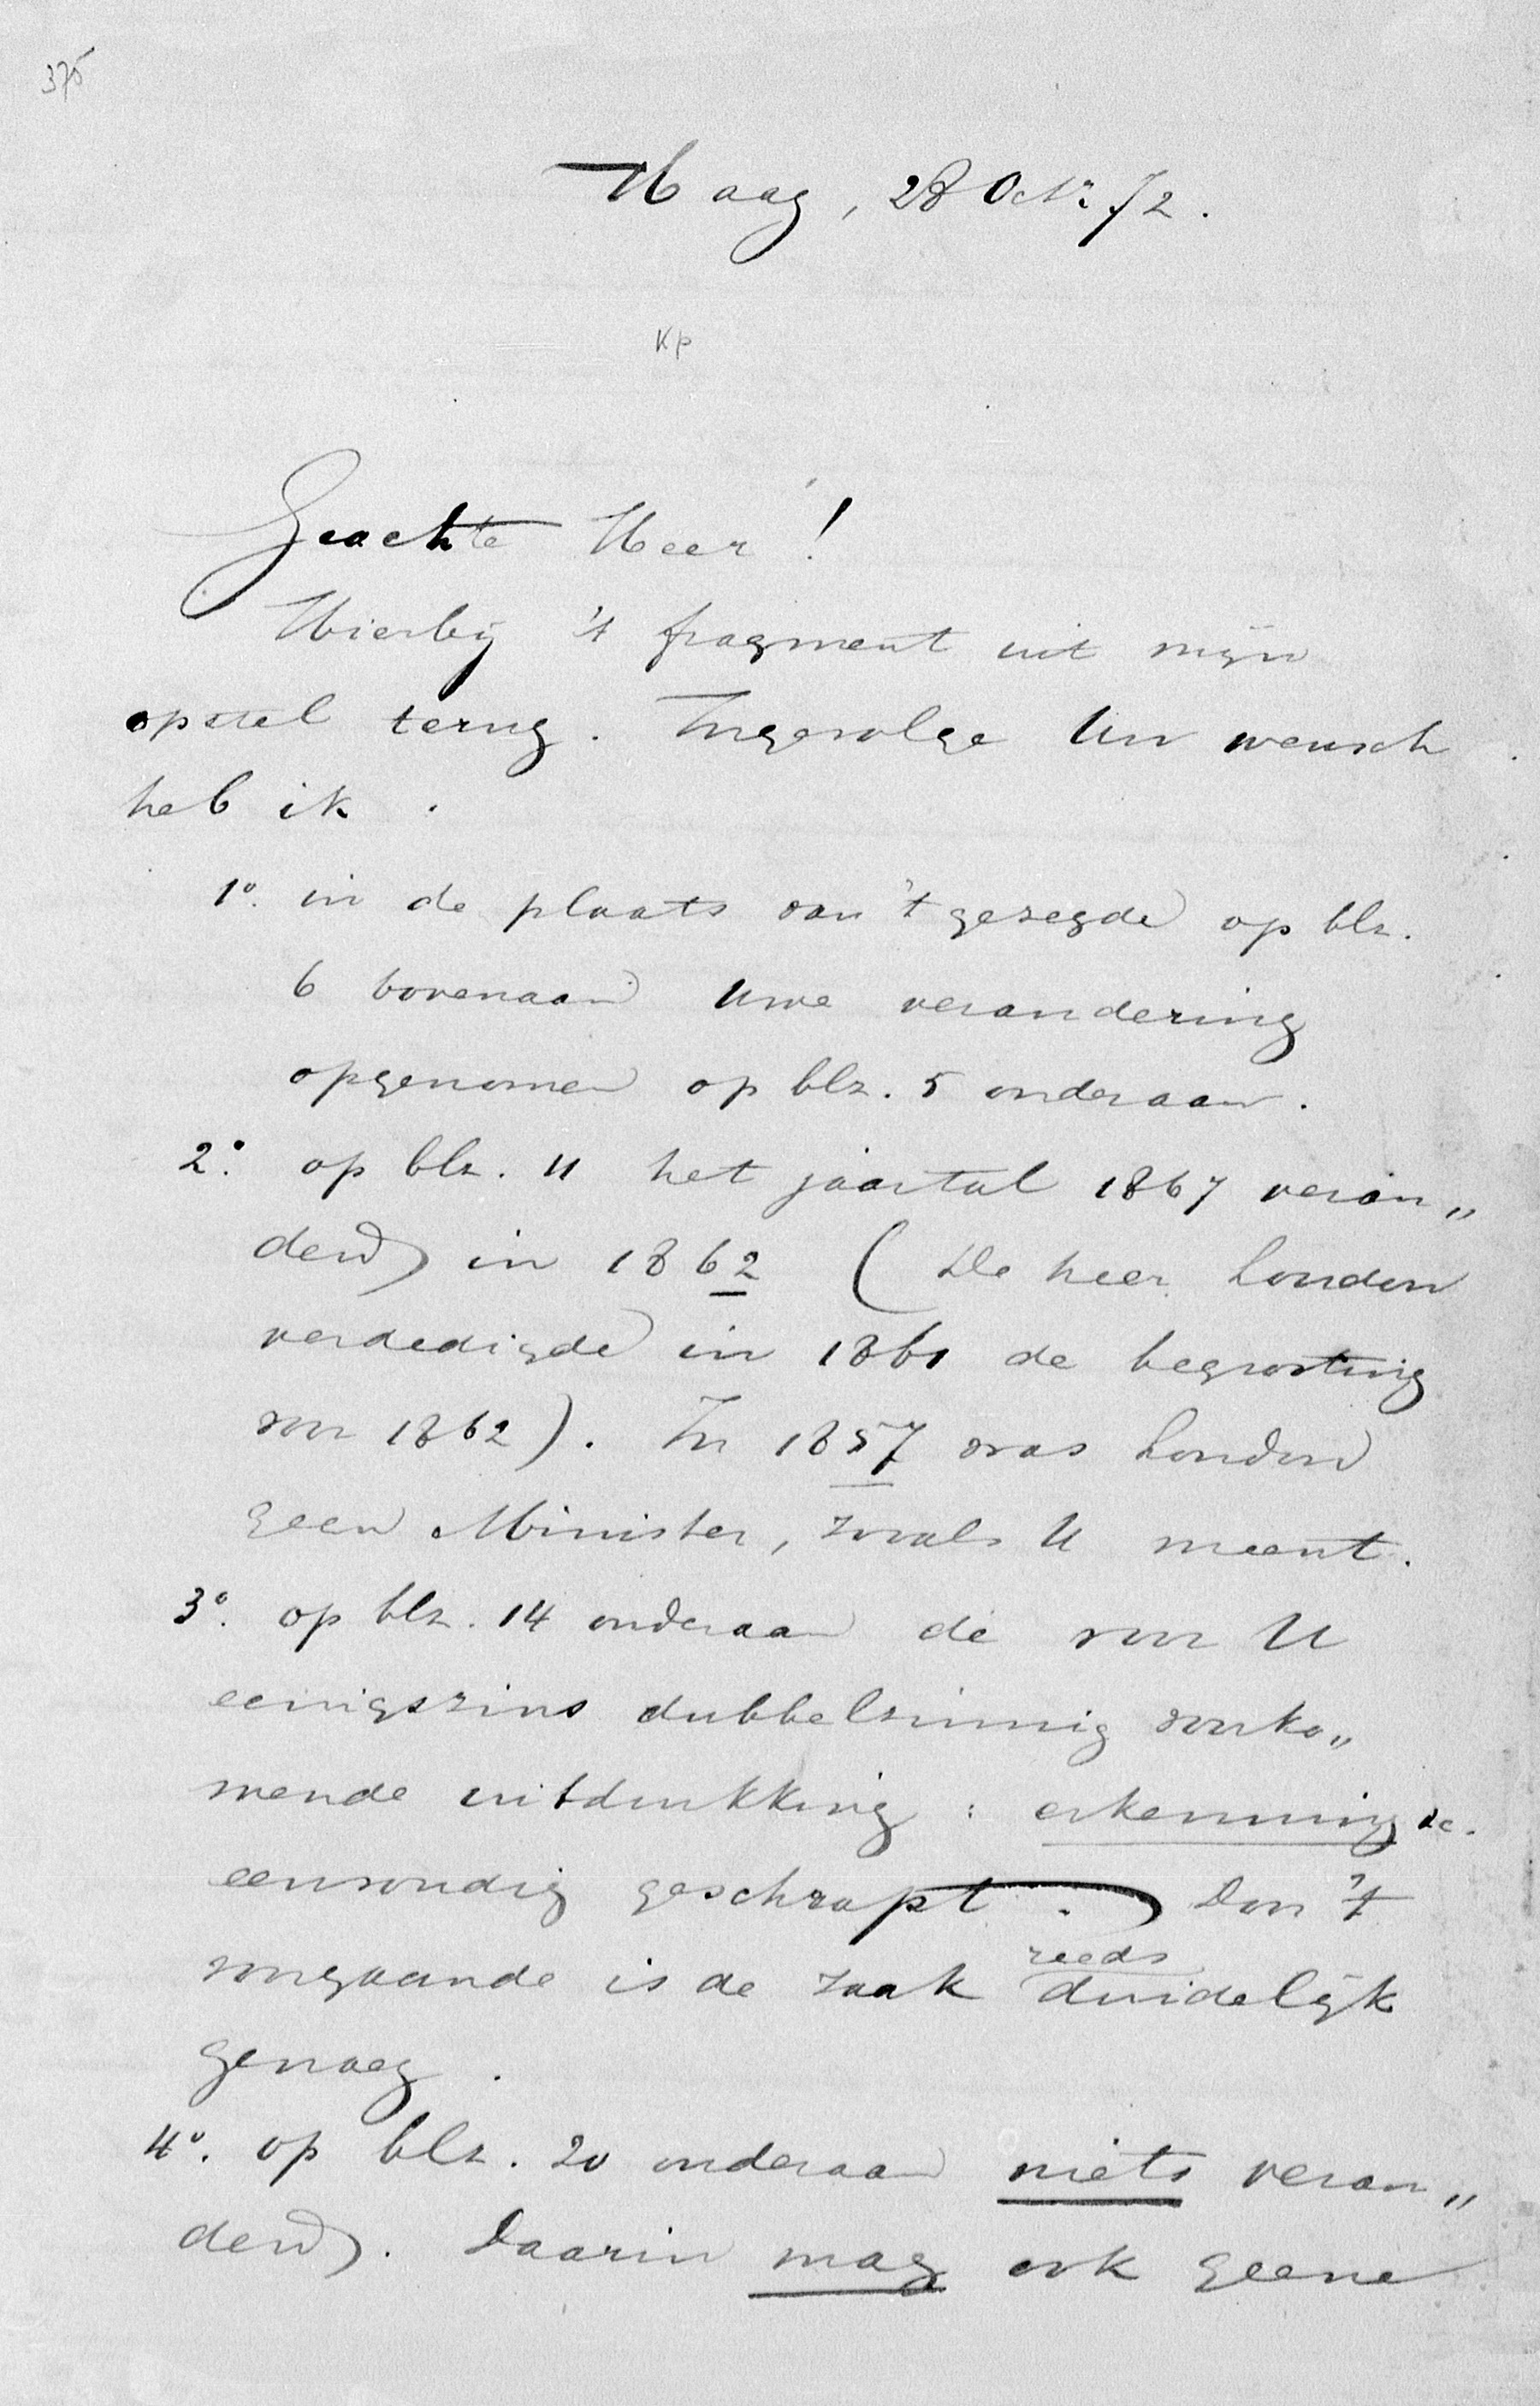 375
Haag, 28 Octr. 72.
Kp
Geachte Heer!
Hierbij 't fragment uit mijn
opstel terug. Ingevolge Uw wensch
heb ik.
1o. in de plaats van 't gezegde op blz.
6 bovenaan Uwe verandering
opgenomen op blz. 5 onderaan.
2o. op blz. 11 het jaartal 1867 veran„
derd in 1862 (De heer Loudon
verdedigde in 1861 de begrooting
voor 1862). In 1857 was Loudon
geen Minister, zooals U meent.
3o. op blz. 14 onderaan de voor U
eenigszins dubbelzinnig voorko„
mende uitdrukking: erkenning &c.
eenvoudig geschrapt. Door 't
reeds
voorgaande is de zaak duidelijk
genoeg.
4o. op blz. 20 onderaan niets veran„
derd. Daarin mag ook geene